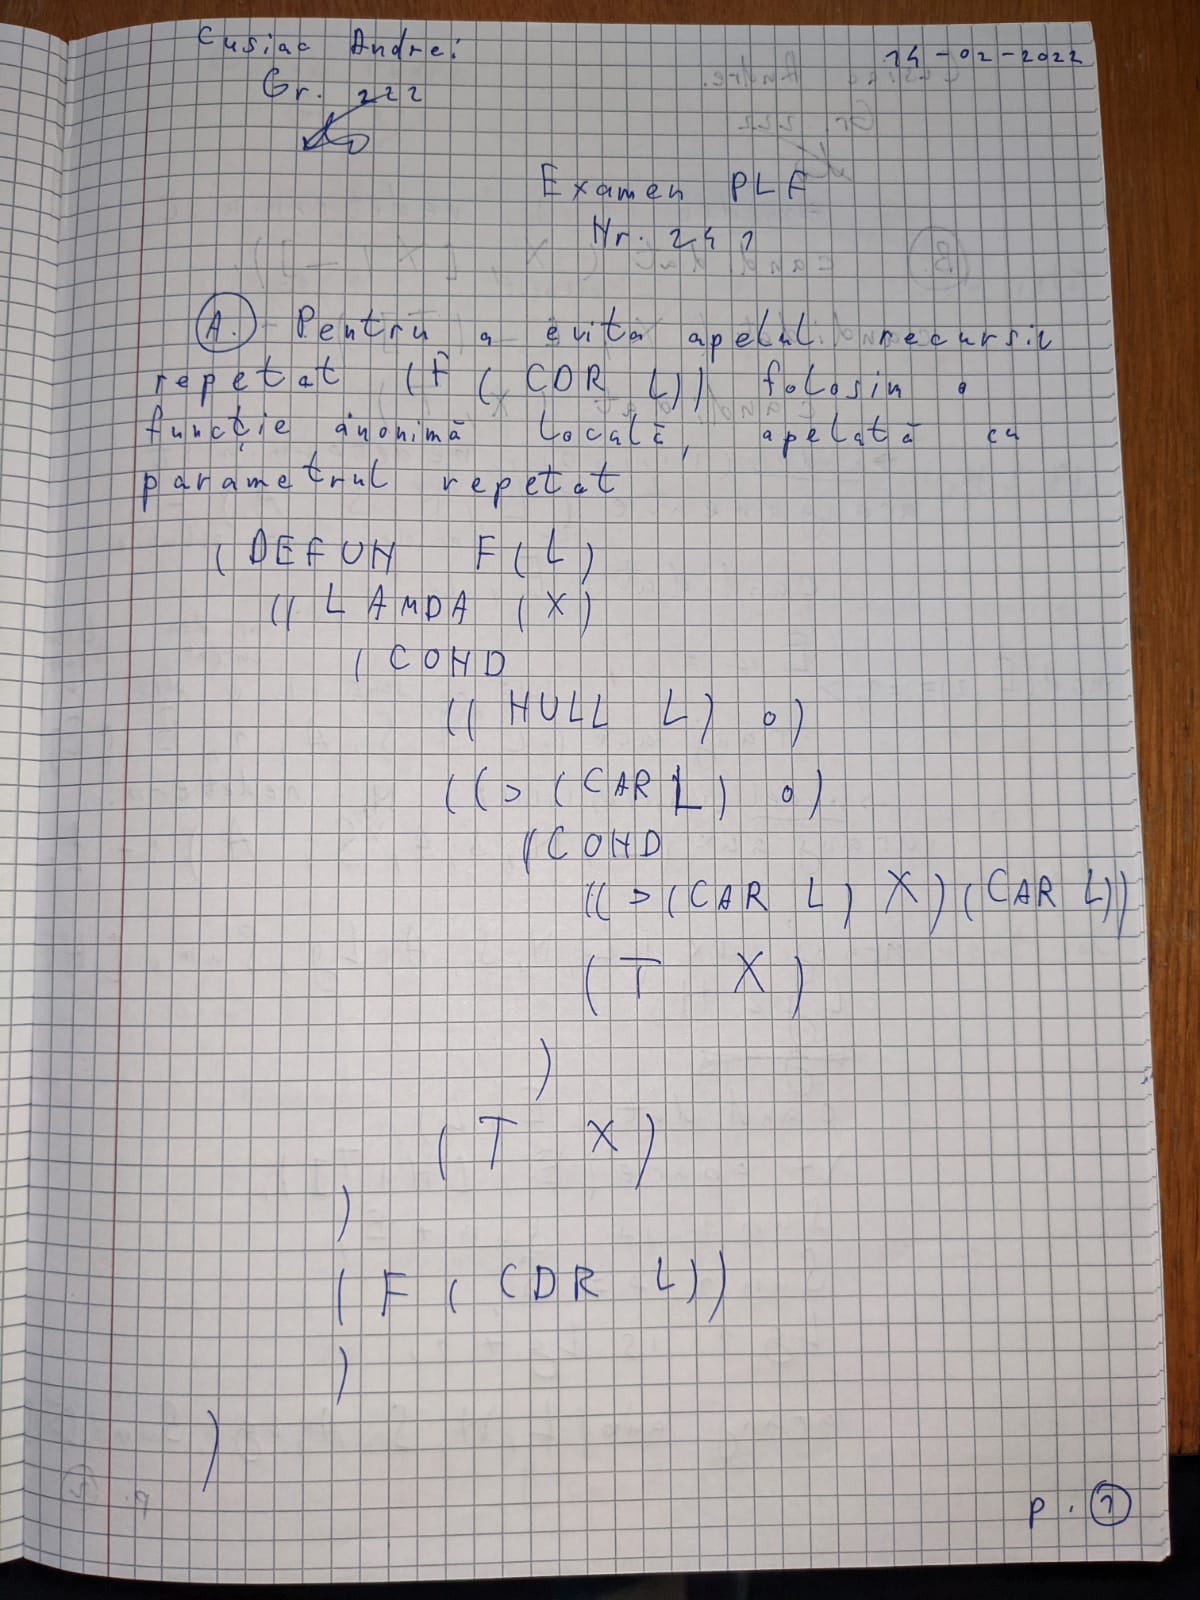 Cusiac Andrei
14-02-2022
Gr. 222
Examen PLF
Nr. 242
A. Pentru a evita apelul recursiv
repetat (F (CDR L)) folosin o
funcție anonimă locală, apelată cu
parametrul repetat
(DEFUN F(L)
((LAMDA (X)
(COND
((NULL L) 0)
((> (CAR L) 0)
(COND
((>(CAR L) X)(CAR L))
(T X)
)
(T X)
)
(F (CDR L))
)
)
p. 1